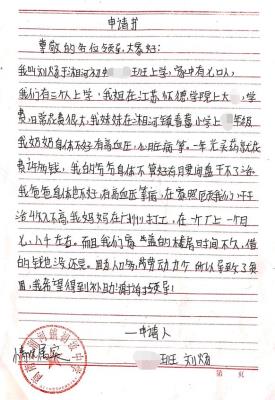 申请书
尊敬的各位领导、大家好:
我叫刘炀于湘河初中 班上学,家中有七口人,
我们有三个上学,我姐在江苏怀德学院上大 ,学
费,日常花费很大,我妹妹在湘河镇喜喜小学上 年级
我奶奶身体不好,有高血压,心脏病等。一年光买药就花
费许多钱,我的爷爷身体不算好月是间盘干不了活
我爸爸身体也不好,有高血压等病,在襄照顾我们,干
活收入不高,我妈妈在广州打工,在一个厂上一个月
七、八千左右。而且我们家 盖的楼房时间不久,借
的钱也没还完。因为人口多,劳动力少所以导致了贫
困,我希望得到补助!谢谢领导!
申请人
班 刘炀
情况属实